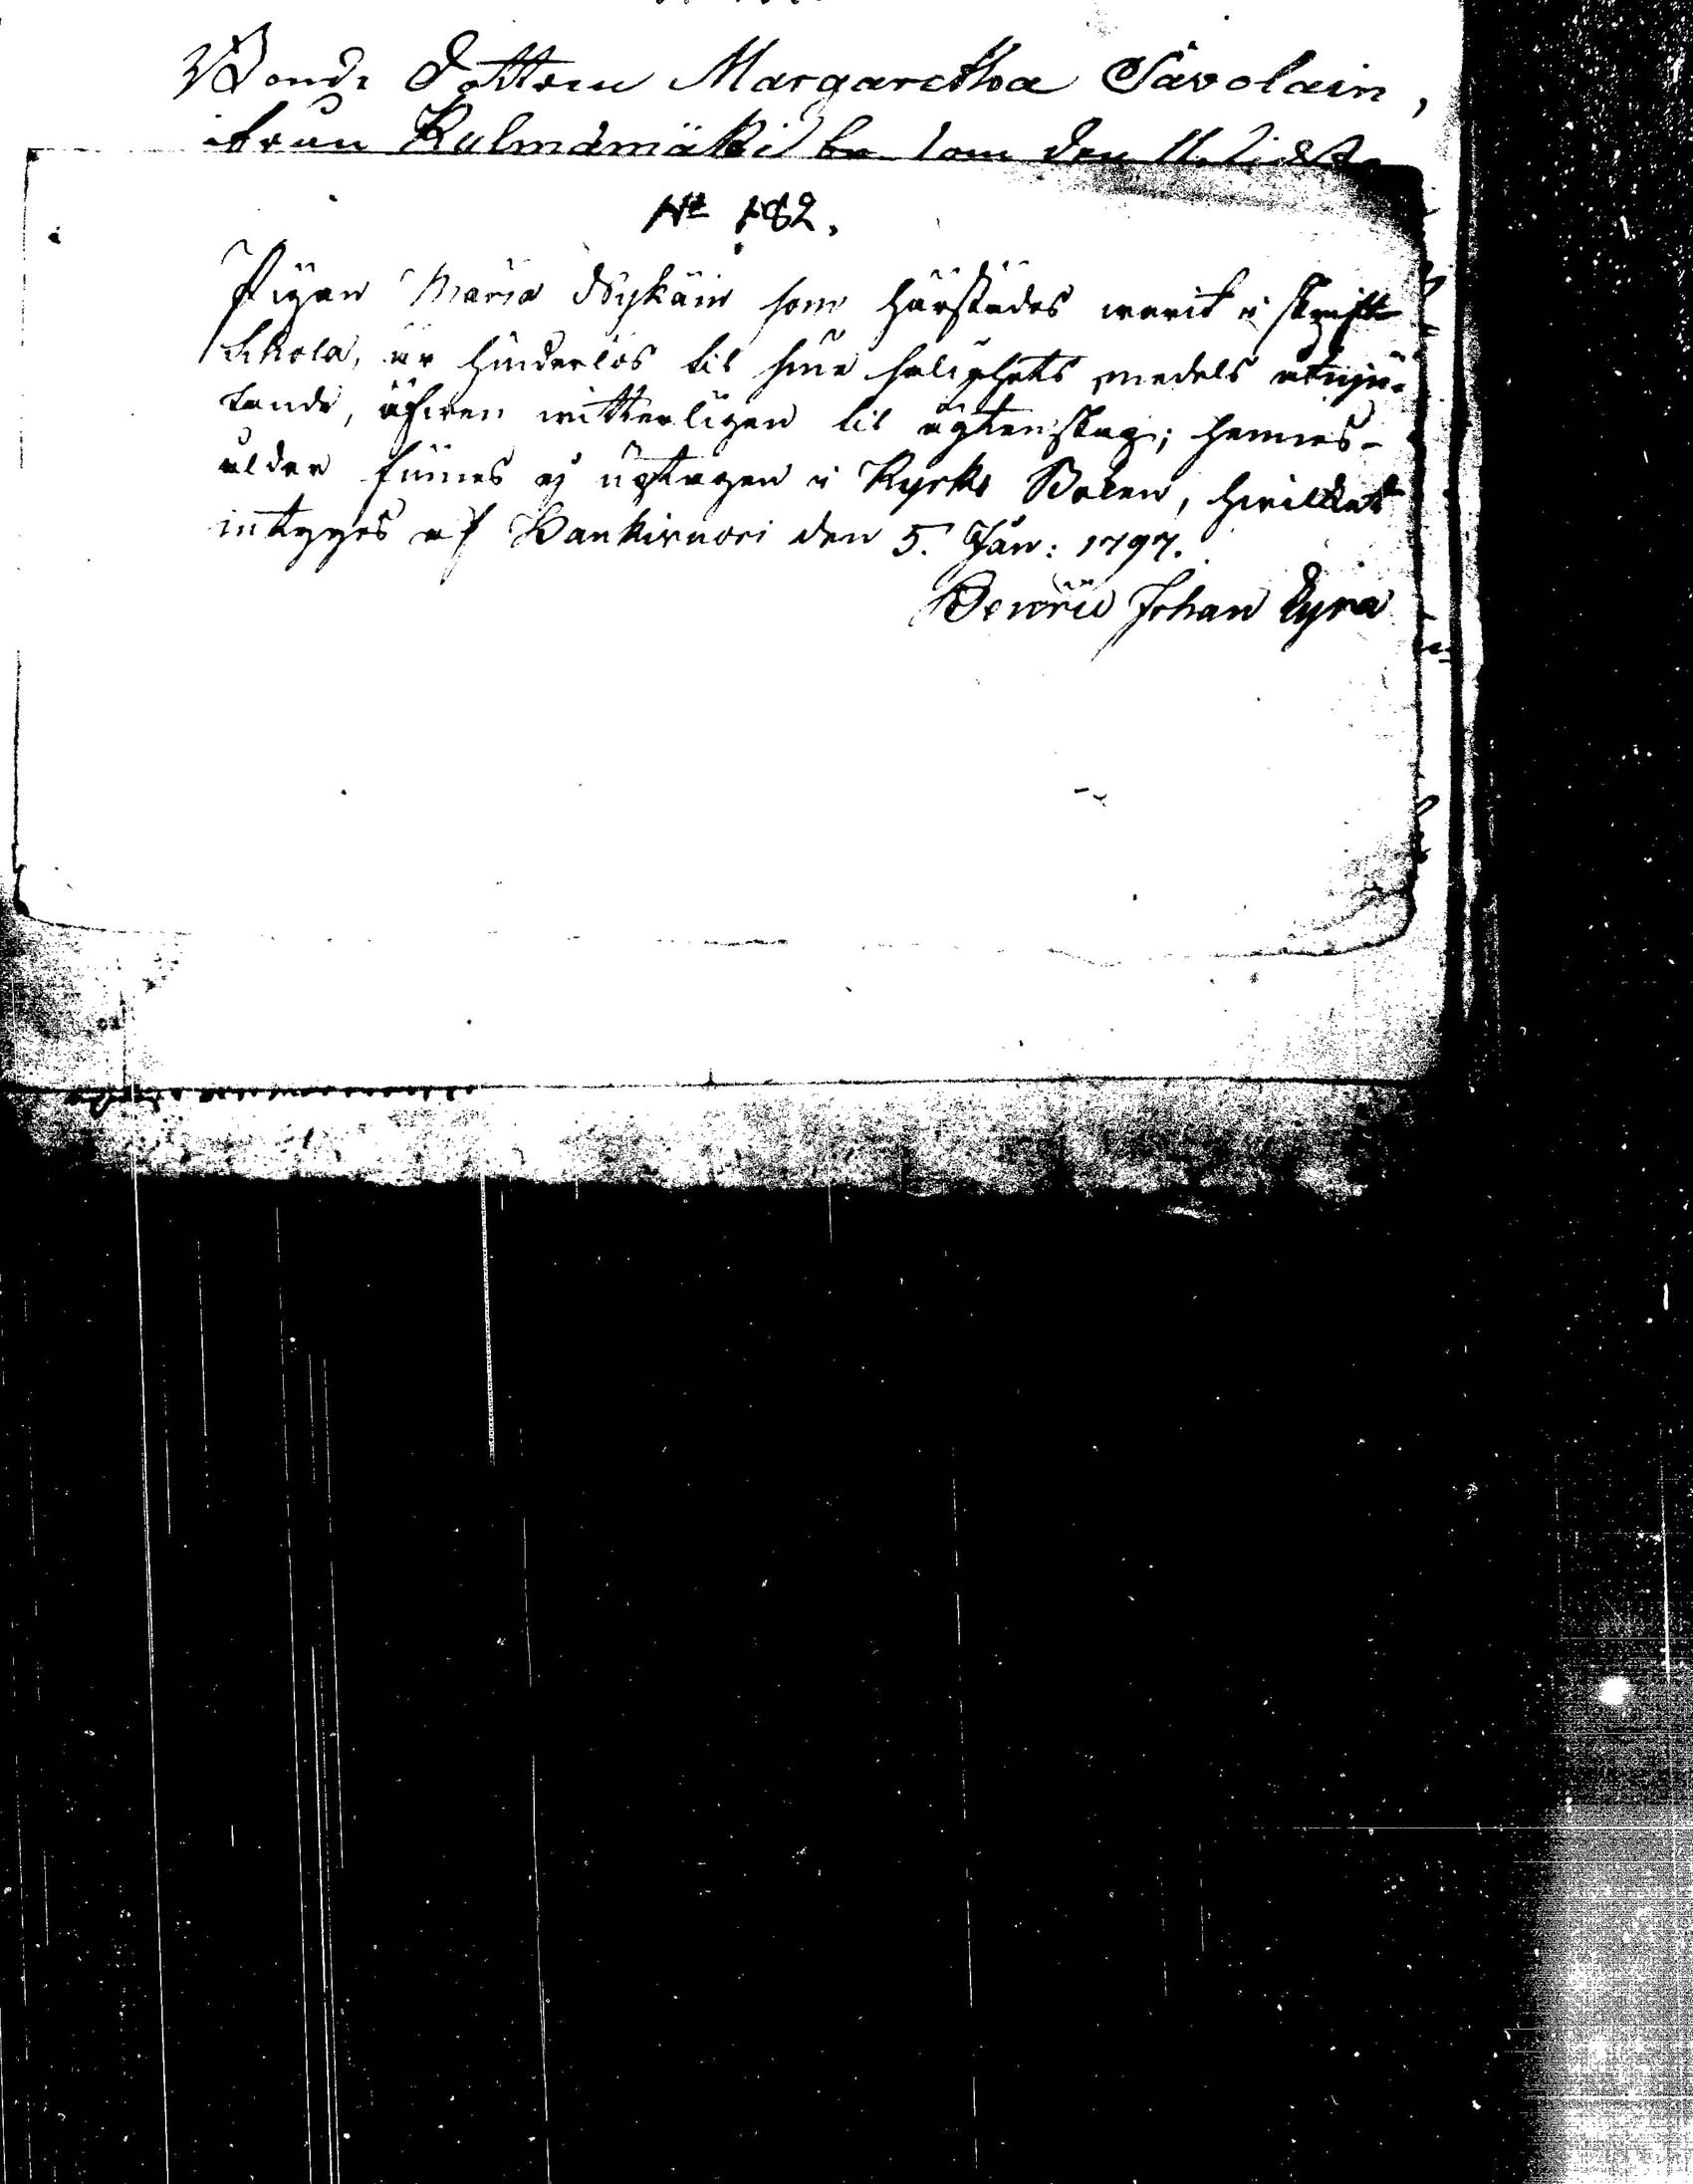 Bonde Dottren Margaretha Savolain,
ifrån Kulmämäki som den 11. sidst
No 182.
Pigan Maria Nykäin som härstädes warit i Skrift
Schola, är hinderlös til sine salighets medels åtnju-
tande, äfwen witterligen til ägtenskap; hennes
ålder finnes ej ugtagen i Kyrko Boken, hwilket
intyges af Hankiwuori den 5. Jan: 1797.
Henric Johan